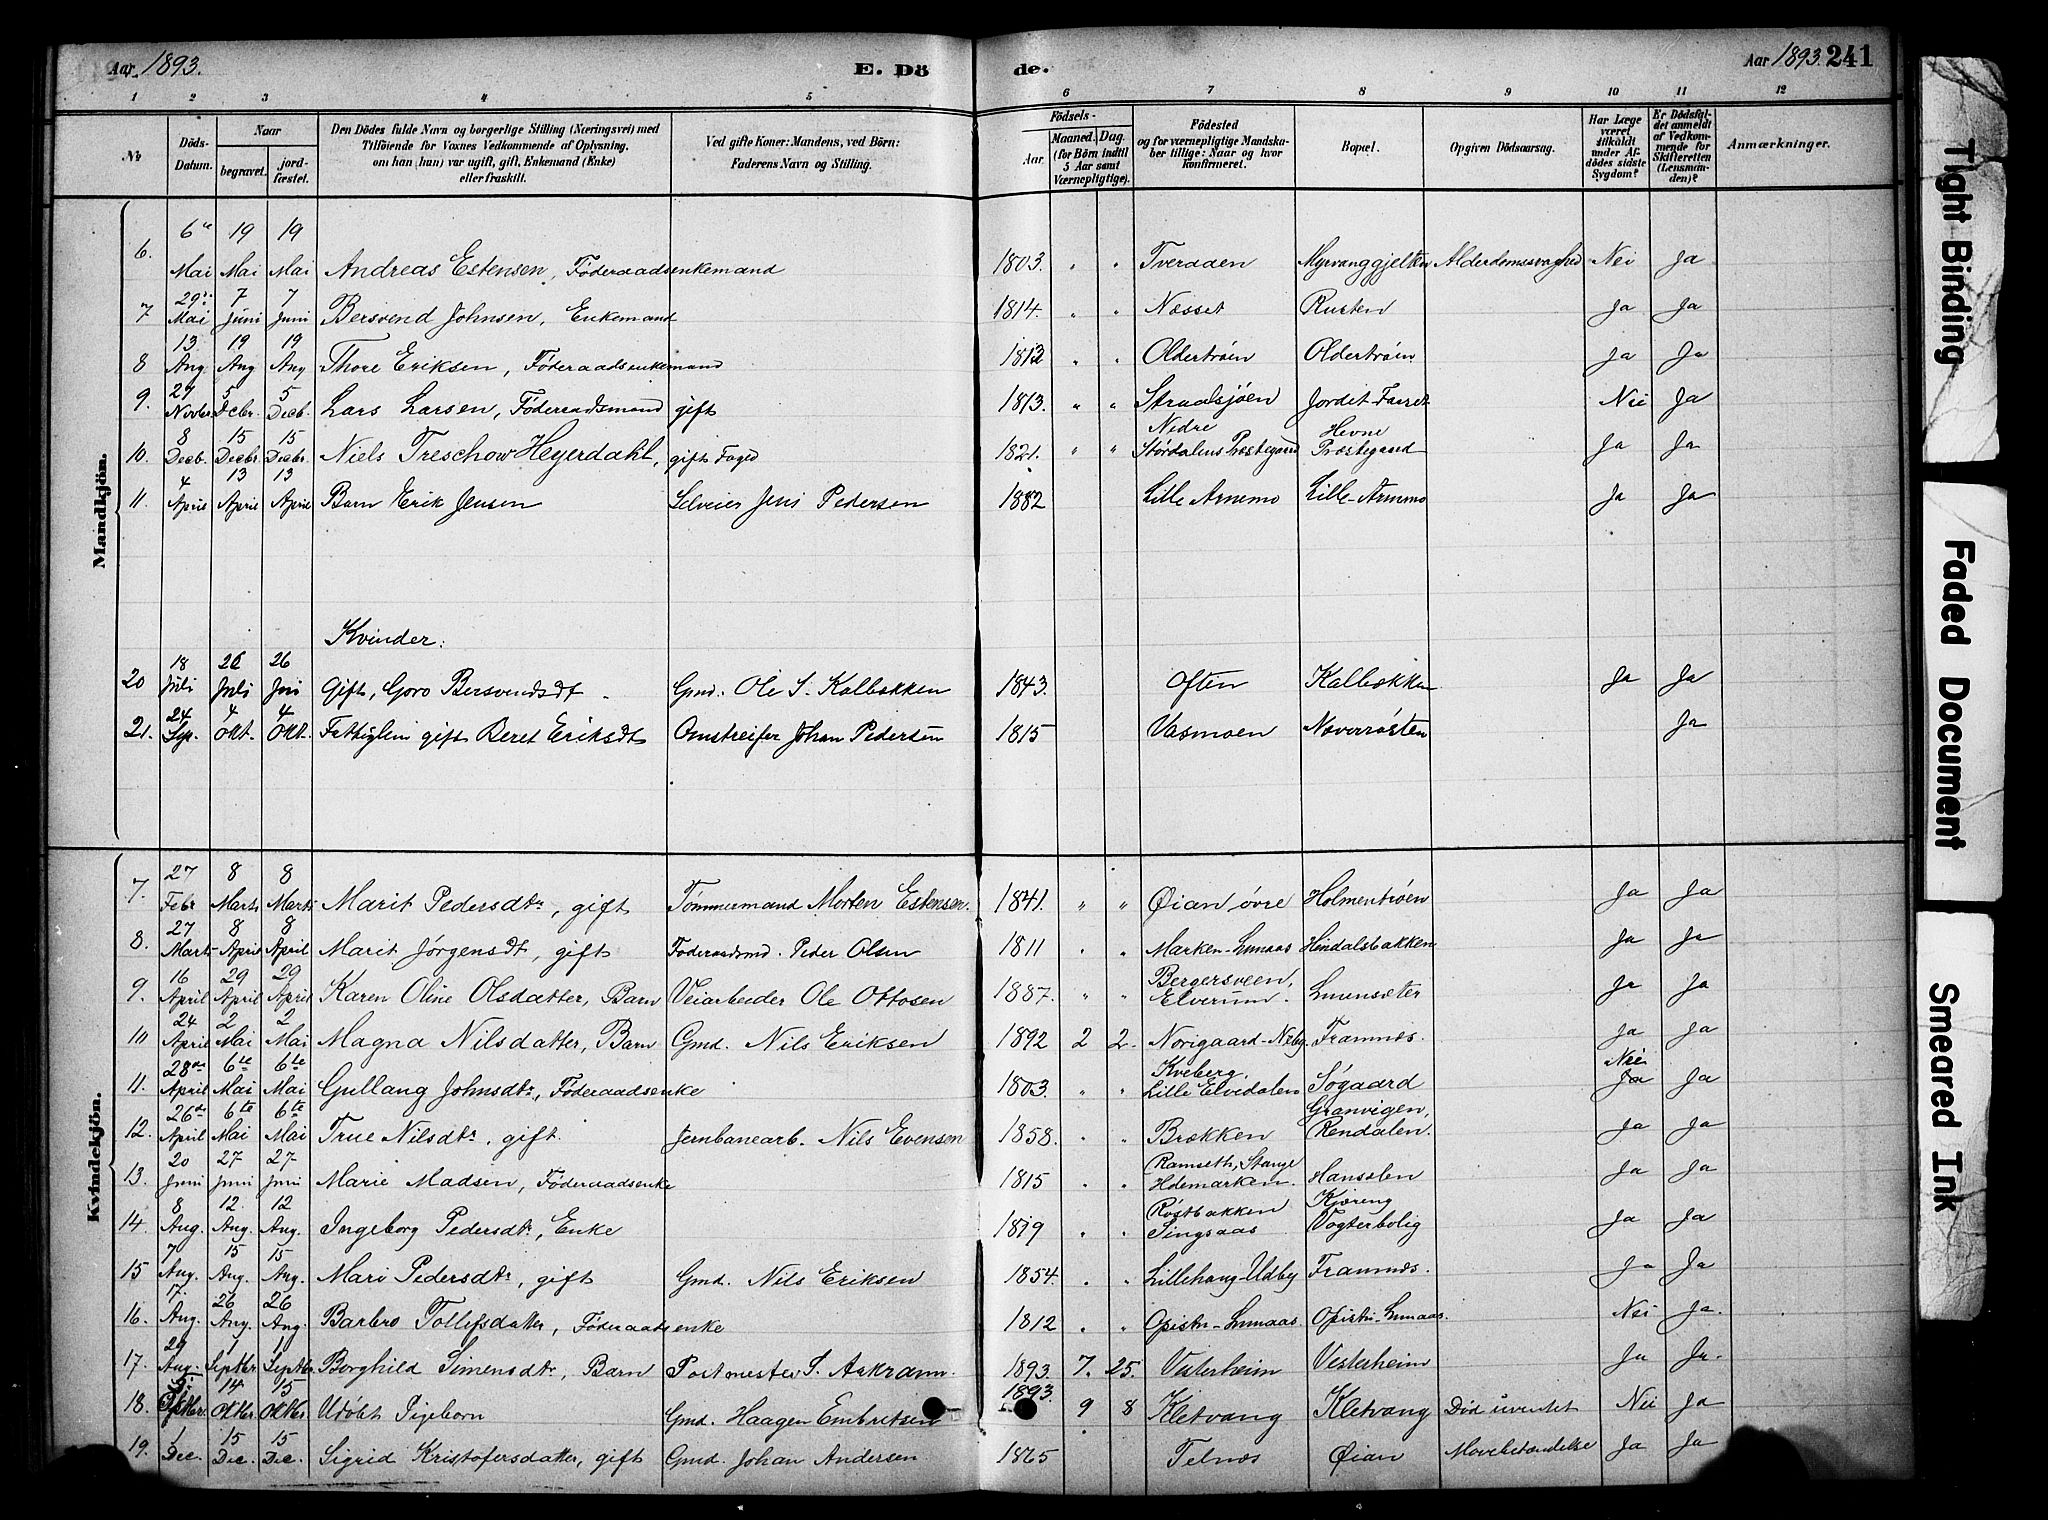 Aar 1893. E. Dö de. Aar 1893. 241
1 2 3 4 5 6 7 8 9 10 11 12
№ Döds-Datum. Naar begravet. jord-fæstet. Den Dödes fulde Navn og borgerlige Stilling (Næringsvei) med Tilföiende for Voxnes Vedkommende af Oplysning, om han (hun) var ugift, gift, Enkemand (Enke) eller fraskilt. Ved gifte Koner: Mandens, ved Börn: Faderens Navn og Stilling. Födsels- Aar. Maaned. Dag. (for Börn indtil 5 Aar samt Værnepligtige). Födested og for værnepligtige Mandskaber tillige: Naar og hvor konfirmeret. Bopæl. Opgiven Dödsaarsag. Har Læge været tilkaldt under Afdödes sidste Sygdom? Er Dödsfaldet anmeldt af Vedkommende for Skifteretten (Lensmanden)? Anmærkninger.
Mandkjön.
6. 6te Mai 19 Mai 19 Mai Andreas Estensen, Føderaadsenkemand 1803. " " Tveraaen Myrvanggjelten Alderdomssvaghed Nei Ja
7 29de Mai 7 Juni 7 Juni Bersvend Johnsen, Enkemand 1814. " " Næsset Rusten Ja Ja
8 13 Aug. 19 Aug 19 Aug Thore Eriksen, Føderaadsenkemand 1812 " " Oldertrøen Oldertrøen Ja Ja
9. 27 Novbr. 5 Decbr. 5 Decb. Lars Larsen, Føderaadsmand gift 1813. " " Straalsjøen Jordet-Farret Nei Ja
10. 8 Decb. 15 Decbr 15 Decbr Niels Treschow Heyerdahl, gift Foged 1821. " " Nedre Størdalens Præstegaard Hevne Præstegaard Ja Ja
11. 4 April 13 April 13 April Barn Erik Jensen Selveier Jens Pedersen 1882 Lille Arnemo Lille-Arnmo Ja Ja
Kvinder:
20 18 Juli 26 Juli 26 Juli Gift, Goro Bersvendsdt. Gmd. Ole S. Kalbækken 1843. Often Kalbækken Ja Ja
21. 24 Sep. 4 Okt. 4 Okt. Fattiglem gift Beret Eriksdt Omstreifer Johan Pedersen 1815 Vasmoen Næverrøsten Ja
Kvindekjön.
7. 27 Febr 8 Marts 8 Marts Marit Pedersdtr, gift Tømmermand Morten Estensen. 1841. " " Øian øvre Holmentrøen Ja Ja
8. 27 Marts 8 April 8 April Marit Jørgensdt, gift Føderaadsmd. Peder Olsen 1811 " " Marken-Lunaas Hindalsbakken Ja Ja
9. 16 April 29 April 29 April Karen Oline Olsdatter, Barn Veiarbeider Ole Ottosen 1887. " " Bergersveen, Elverum. Lunensæter Ja Ja
10 24 April 2 Mai 2 Mai Magna Nilsdatter, Barn Gmd. Nils Eriksen 1892 2 2. Norigaard-Neby. Framnæs. Ja Ja
11. 28de April 6te Mai 6te Mai Gullaug Johnsdtr, Føderaadsenke 1803. " " Kveberg, Lille Elvedalen Søgaard Nei Ja Ja
12. 26de April 6te Mai 6te Mai True Nilsdtr, gift. Jernbanearb. Nils Evensen 1858. " Brækken Granvigen, Rendalen. Ja Ja
13. 20 Juni 27 Juni 27 Juni Marie Madsen, Føderaadsenke 1815 " " Ramseth, Stange Hdemarken. Hansølen Ja Ja
14. 8 Aug. 12. Aug. 12 Aug. Ingeborg Pedersdtr, Enke 1819 " " Røstbakken Singsaas Kjøreng Vogterbolig Ja Ja
15 7 Aug. 15 Aug. 15 Aug. Mari Pedersdtr, gift Gmd. Nils Eriksen 1854. " " Lillehaug-Udby Framnæs. Ja Ja
16. 17. Aug. 26 Aug. 26 Aug. Barbro Tollefsdatter, Føderaadsenke 1812 " " Opistu-Lunaas. Opistu-Lunaas. Nei Ja.
17. 29 Aug. 1 Septbr. 1 Septbr. Borghild Simensdtr, Barn Postmester S. Aakrann. 1893. 7. 25. Vesterheim Vesterheim Ja Ja.
18. 5. Oktbr. 14 Oktbr. 15 Oktbr. Udøbt Pigeborn Gmd. Haagen Embretsen 1893. 9 8 Kletvang Kletvang Død uventet Nei Ja
19. 1 Dec. 15 Dec. 15 Dec. Sigrid Kristofersdatter, gift Gmd. Johan Andersen 1865 Telnæs Øian Mavebetændelse Ja Ja
Tight Binding
Faded Document
Smeared Ink